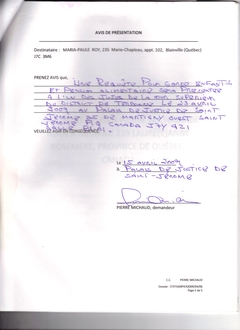 AVIS DE PRÉSENTATION
Destinataire : MARIA-PAULE ROY, 235 Marie-Chapleau, appt. 102, Blainville (Québec)
J7C
PRENEZ AVIS que,
UNE REQUÊTE POUR GARDE ENFANTS
ET PENSION ALIMENTAIRE SERA PRÉSENTÉE
À L'UN DES JUGES DE LA COUR SUPÉRIEURE
DU DISTRICT DE TERREBONNE LE 23 AVRIL
2009 AU PALAIS DE JUSTICE DE SAINT
JÉRÔME DE MARTIGNY OUEST SAINT
JÉRÔME CANADA
VEUILLEZ AGIR EN CONSÉQUENCE.
Le 15 AVRIL 2009
à PALAIS DE JUSTICE DE
SAINT-JÉRÔME
PIERRE MICHAUD, demandeur
PIERRE MICHAUD